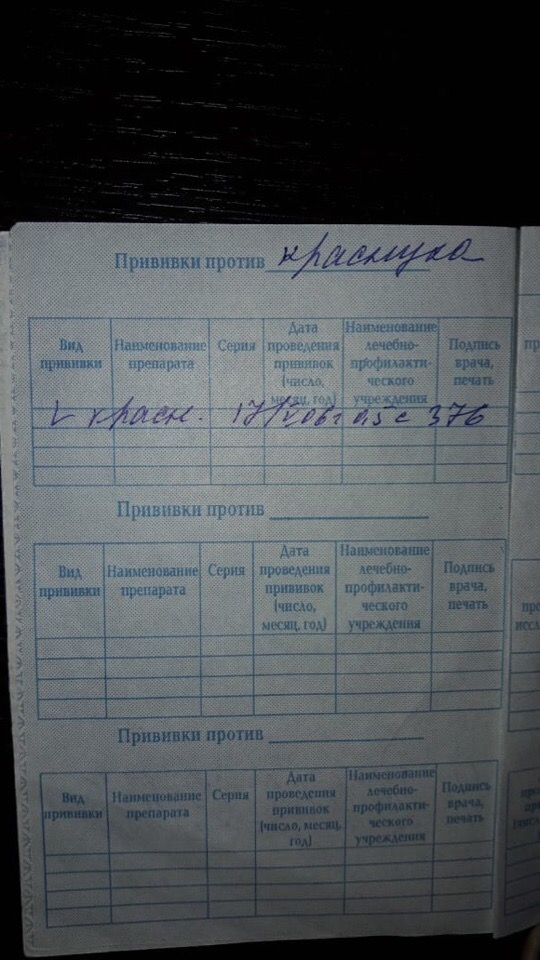 Прививки против краснуха
Вид прививки Наименование препарата Серия Дата проведения прививок (число, месяц, год) Наименование лечебно-профилактического учреждения Подпись врача, печать
V красн. 17/V 06г 0,5 с 376
Прививки против
Вид прививки Наименование препарата Серия Дата проведения прививок (число, месяц, год) Наименование лечебно-профилактического учреждения Подпись врача, печать
Прививки против
Вид прививки Наименование препарата Серия Дата проведения прививок (число, месяц, год) Наименование лечебно-профилактического учреждения Подпись врача, печать